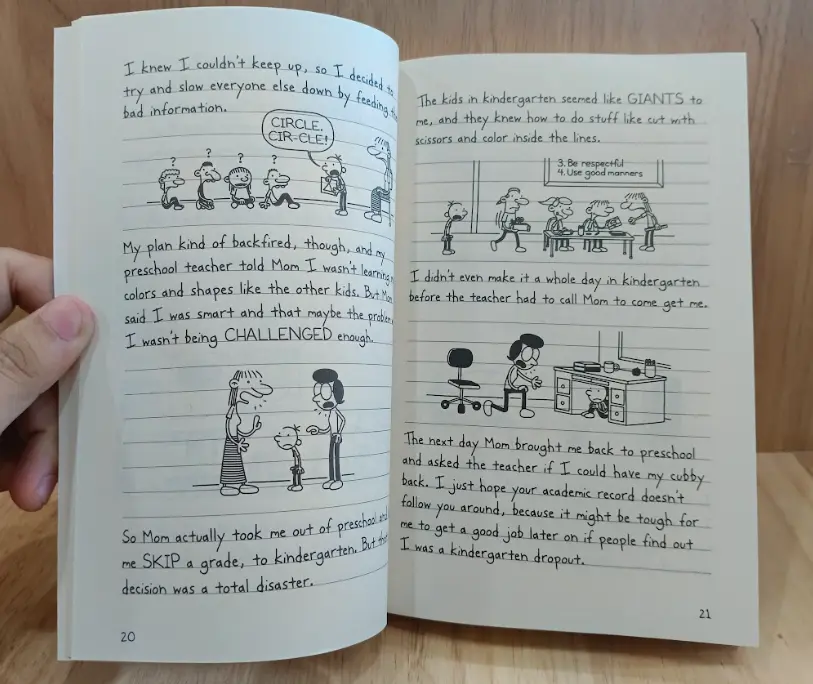 I knew I couldn't keep up, so I decided to
try and slow everyone else down by feeding
bad information.
CIRCLE.
CIR-CLE!
?
?
?
?
My plan kind of backfired, though, and my
preschool teacher told Mom I wasn't learning
colors and shapes like the other kids. But Mom
said I was smart and that maybe the problem
I wasn't being CHALLENGED enough.
So Mom actually took me out of preschool and
me SKIP a grade, to kindergarten. But
decision was a total disaster.
20
The kids in kindergarten seemed like GIANTS to
me, and they knew how to do stuff like cut with
scissors and color inside the lines.
3. Be respectful
4. Use good manners
I didn't even make it a whole day in kindergarten
before the teacher had to call Mom to come get me.
The next day Mom brought me back to preschool
and asked the teacher if I could have my cubby
back. I just hope your academic record doesn't
follow you around, because it might be tough for
me to get a good job later on if people find out
I was a kindergarten dropout.
21